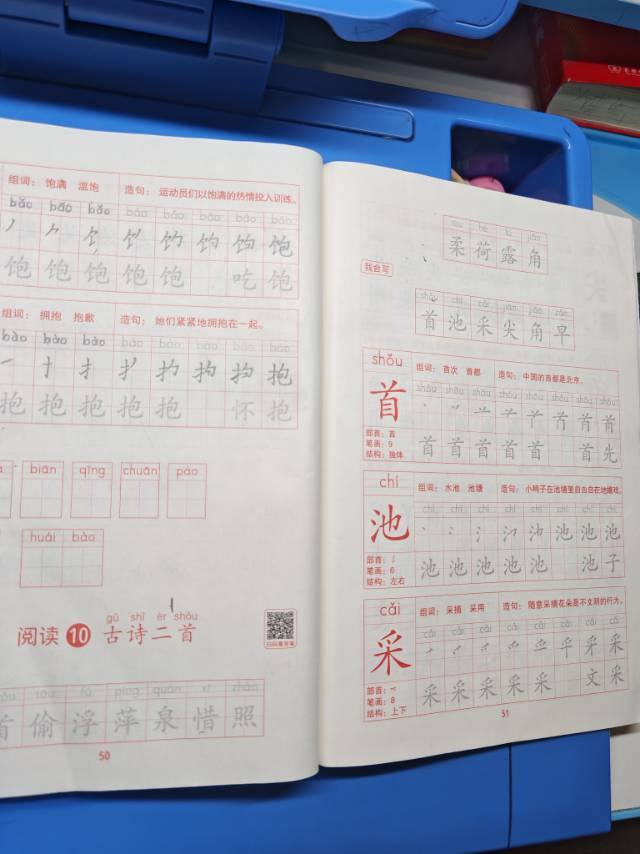 组词： 饱满 温饱 造句： 运动员们以饱满的热情投入训练。
bǎo bǎo bǎo bǎo bǎo bǎo bǎo bǎo
饱
饱 饱 饱 饱 饱 吃 饱
组词： 拥抱 抱歉 造句： 她们紧紧地拥抱在一起。
bào bào bào bào bào bào bào bào
抱
抱 抱 抱 抱 抱 怀 抱
biān qīng chuān páo
huái bào
gǔ shī èr shǒu
阅读 10 古诗二首
扫码看答案
tōu fú píng quán xī zhào
首 偷 浮 萍 泉 惜 照
50
róu hé lù jiǎo
柔 荷 露 角
我会写
shǒu chí cǎi jiān jiǎo zǎo
首 池 采 尖 角 早
shǒu
首
部首：首
笔画：9
结构：独体
组词： 首次 首都 造句： 中国的首都是北京。
shǒu shǒu shǒu shǒu shǒu shǒu shǒu shǒu
首 首
首 首 首 首 首 首 先
chí
池
部首：氵
笔画：6
结构：左右
组词： 水池 池塘 造句： 小鸭子在池塘里自由自在地嬉戏。
chí chí chí chí chí chí chí chí
池 池
池 池 池 池 池 池 子
cǎi
采
部首：爫
笔画：8
结构：上下
组词： 采摘 采用 造句： 随意采摘花朵是不文明的行为。
cǎi cǎi cǎi cǎi cǎi cǎi cǎi cǎi
采 采
采 采 采 采 采 文 采
51